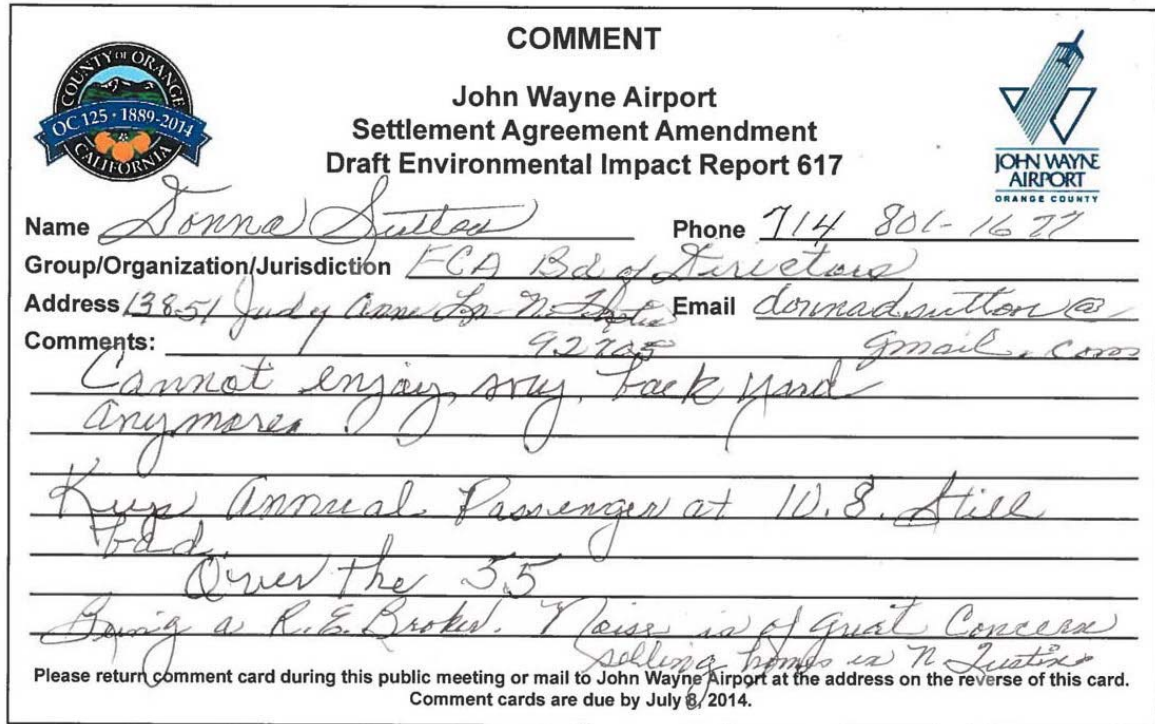 COMMENT
COUNTY OF ORANGE
OC 125 · 1889-2014
CALIFORNIA
John Wayne Airport
Settlement Agreement Amendment
Draft Environmental Impact Report 617
JOHN WAYNE
AIRPORT
ORANGE COUNTY
Name Donna Sutton Phone 714 801-1677
Group/Organization/Jurisdiction FCA Bd of Directors
Address 13851 Judy Anne Ln - N. Tustin Email donnadsutton@
Comments: 92705 gmail.com
Cannot enjoy my back yard
anymore.
Keep Annual Passenger at 10.8. Still
bad.
Over the 55
Being a R.E. Broker. Noise is of great Concern
selling homes in N Tustin
Please return comment card during this public meeting or mail to John Wayne Airport at the address on the reverse of this card.
Comment cards are due by July 8, 2014.